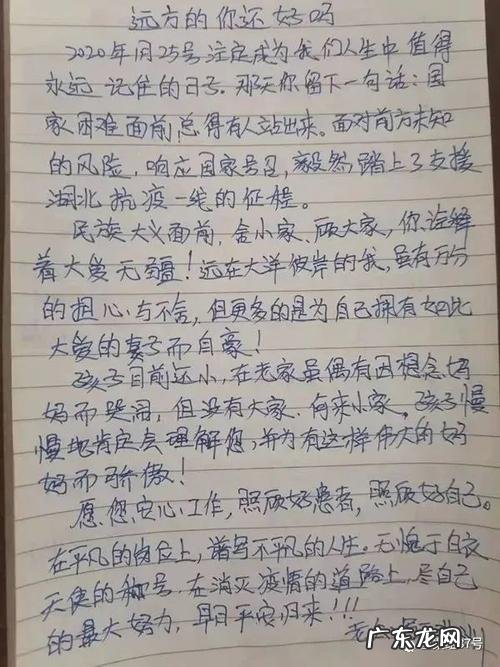 远方的你还好吗
2020年1月25号注定成为我们人生中值得
永远记住的日子。那天你留下一句话:国
家困难面前总得有人站出来。面对前方未知
的风险,响应国家号召,毅然踏上了支援
湖北抗疫一线的征程。
民族大义面前,舍小家、顾大家,你诠释
着大爱无疆!远在大洋彼岸的我,虽有万分
的担心与不舍,但更多的是为自己拥有如此
大爱的妻子而自豪!
孩子目前还小,在老家虽偶有因想念妈
妈而哭闹,但没有大家、何来小家。孩子慢
慢地肯定会理解您,并为有这样伟大的妈
妈而骄傲!
愿您安心工作,照顾好患者,照顾好自己。
在平凡的岗位上,谱写不平凡的人生。无愧于白衣
天使的称号。在消灭疫情的道路上,尽自己
的最大努力,早日平安归来!!!
广东龙网